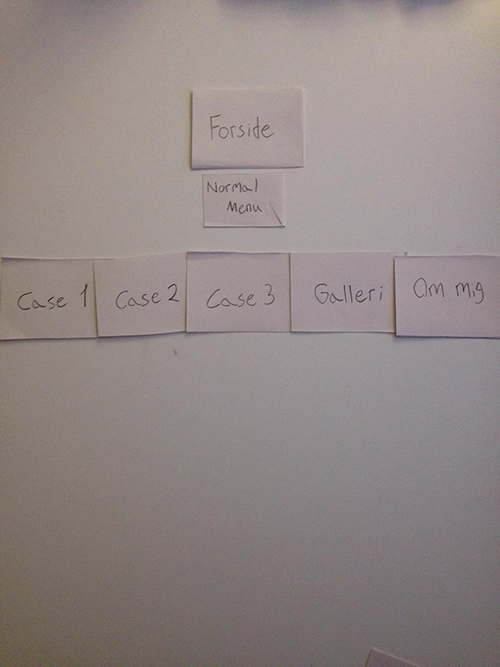 Forside
Normal
Menu
Case 1
Case 2
Case 3
Galleri
Om mig